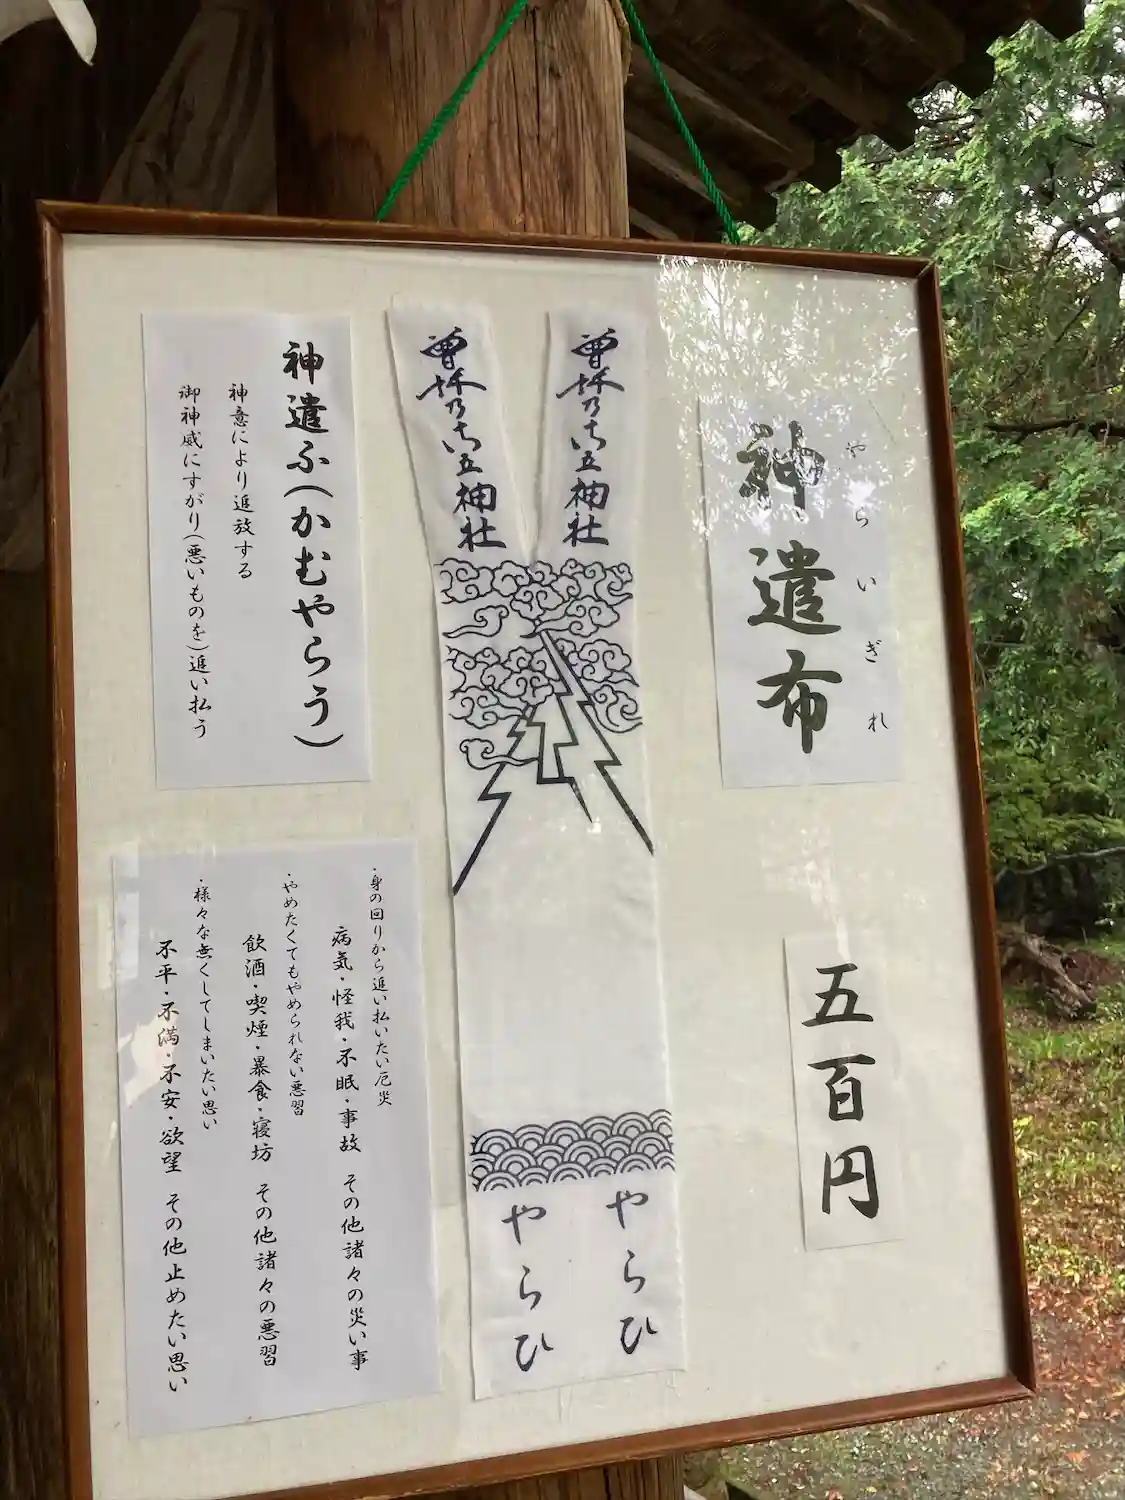 神遣布
やらいぎれ
五百円
曾許乃御立神社
曾許乃御立神社
やらひ
やらひ
神遣ふ(かむやらう)
神意により追放する
御神威にすがり(悪いものを)追い払う
・身の回りから追い払いたい厄災
病気・怪我・不眠・事故 その他諸々の災い事
・やめたくてもやめられない悪習
飲酒・喫煙・暴食・寝坊 その他諸々の悪習
・様々な無くしてしまいたい思い
不平・不満・不安・欲望 その他止めたい思い